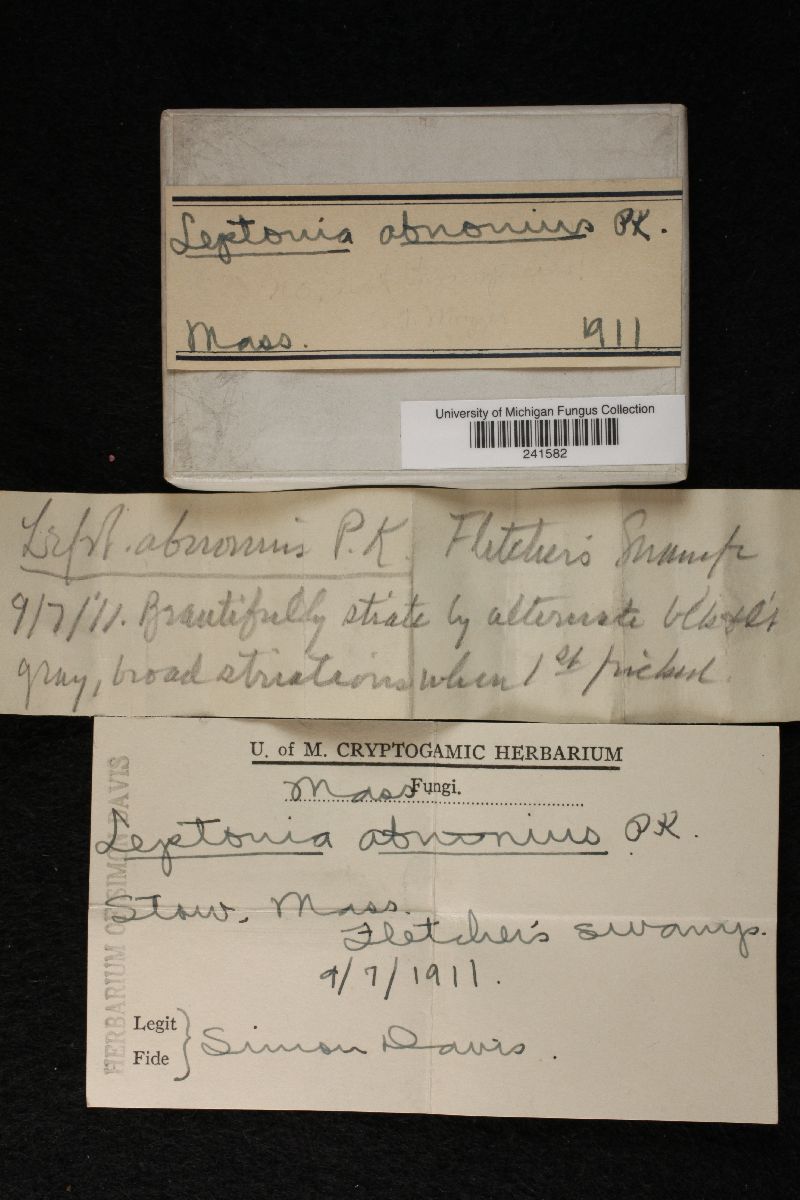 Leptonia abnonius PK.
Mass. 1911
University of Michigan Fungus Collection
241582
Lept. abnonius P.K. Fletcher's Swamp
9/7/'11. Beautifully striate by alternate blk & lt
gray, broad striations when 1st picked.
U. of M. CRYPTOGAMIC HERBARIUM
Mass. Fungi.
Leptonia abnonius PK.
Stow, Mass.
Fletcher's swamp.
9/7/1911.
Legit
Fide } Simon Davis.
HERBARIUM OF SIMON DAVIS